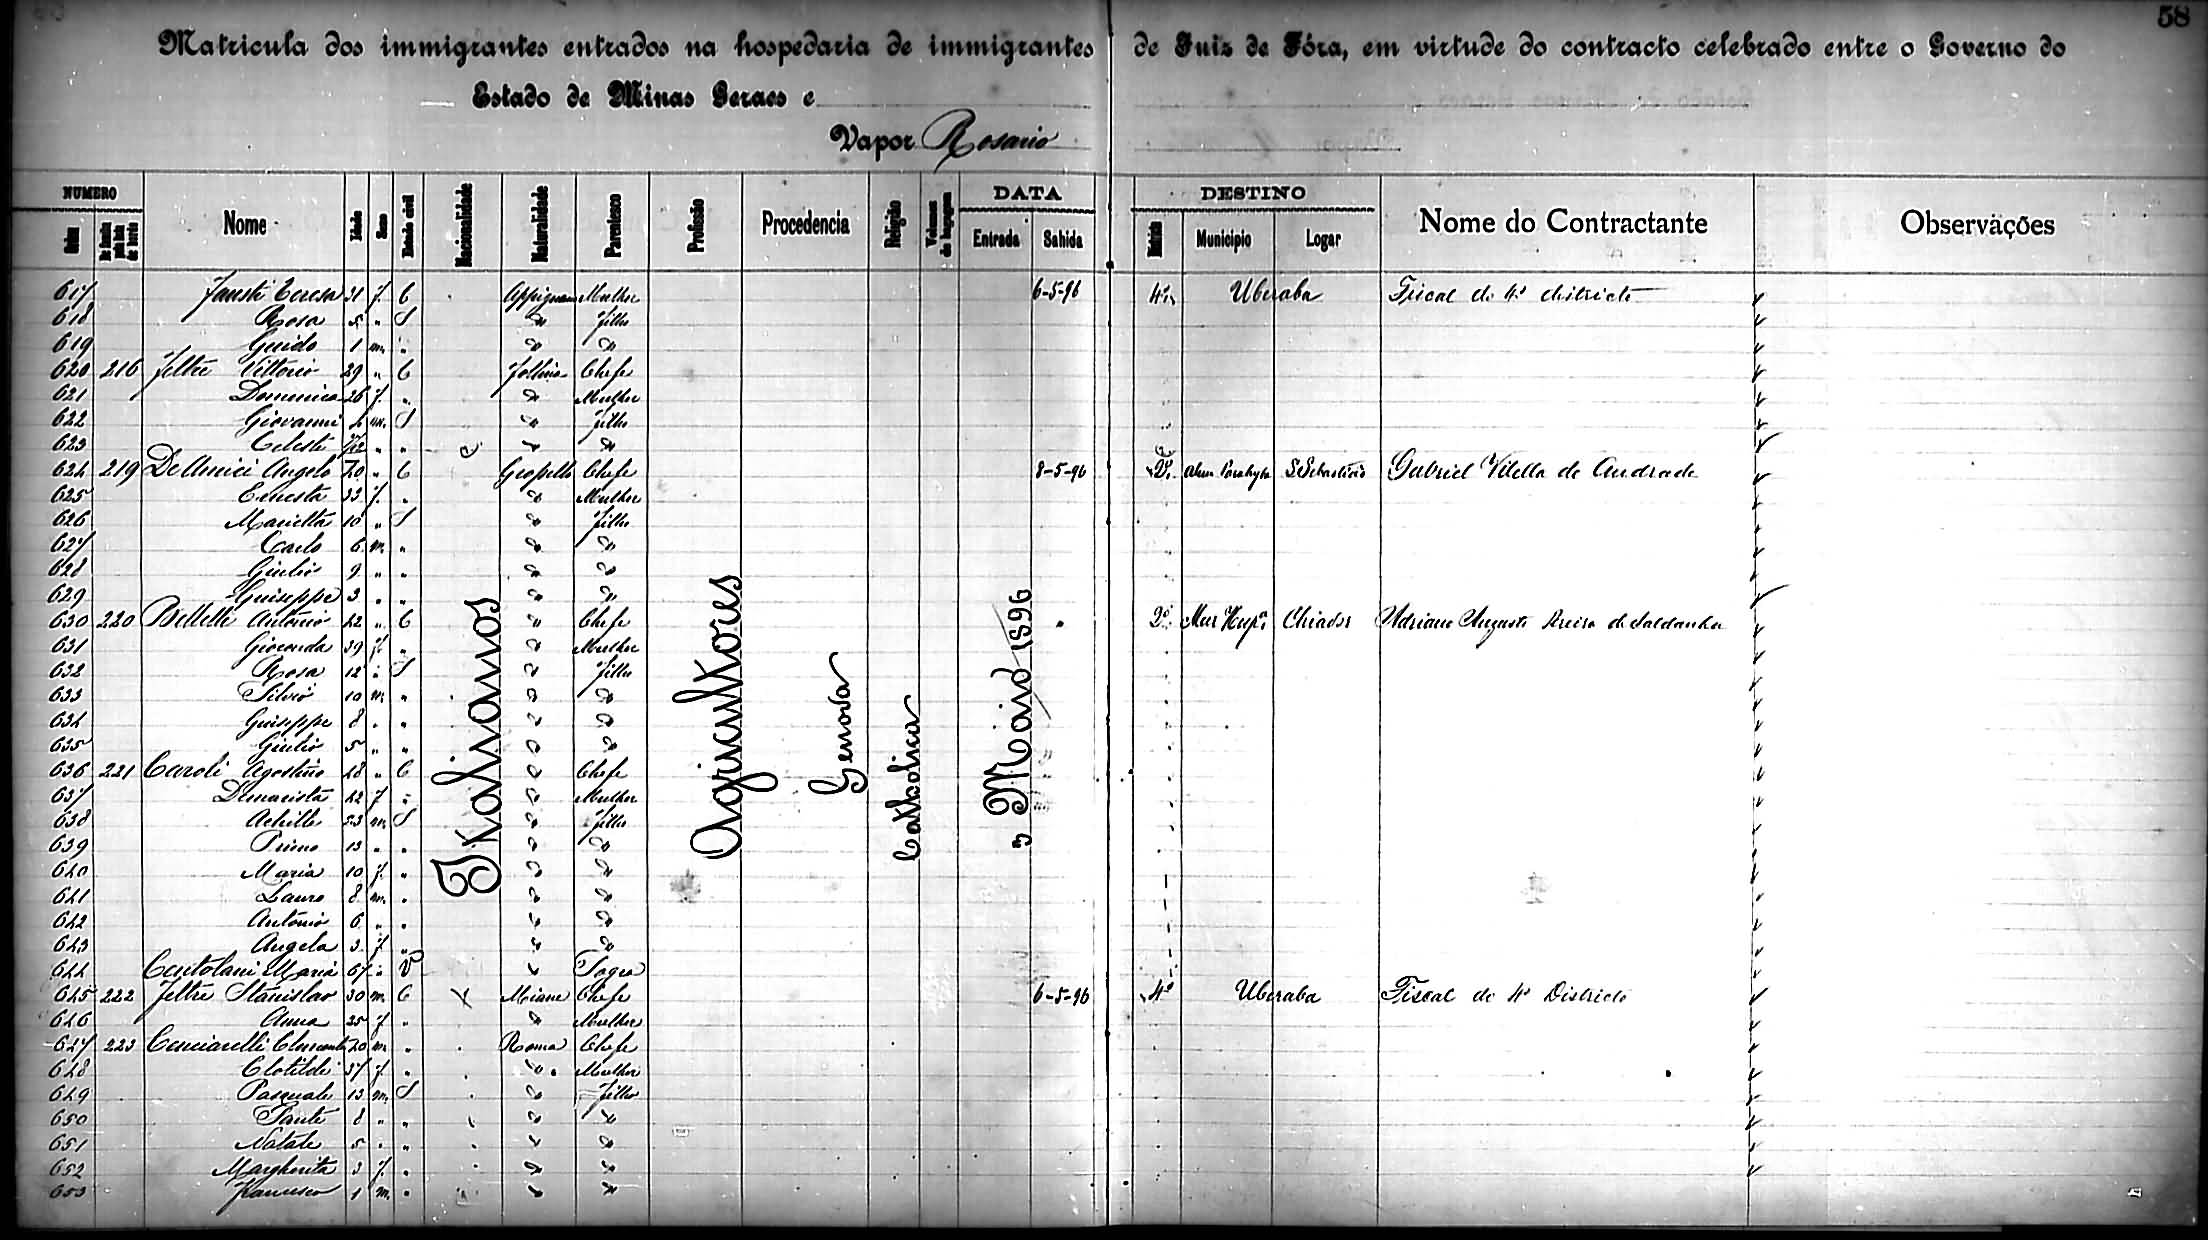 58
Matricula dos immigrantes entrados na hospedaria de immigrantes de Juiz de Fóra, em virtude do contracto celebrado entre o Governo do
Estado de Minas Geraes e
Vapor Rosario
NUMERO DATA DESTINO
Nome Idade Sexo Estado civil Nacionalidade Naturalidade Parentesco Profissão Procedencia Religião Volumes de bagagem Entrada Sahida Municipio Logar Nome do Contractante Observações
Italianos Agricultores Genova Catholica 3 Maio 1896
617 Fausti Teresa 31 f. C Mulher 6-5-96 4º Uberaba Fiscal do 4º districto
618 Rosa 5 " S " Filho
619 Guido 1 m. " " "
620 216 Feltre Vittorio 29 " C Follina Chefe
621 Domenica 26 f. " " Mulher
622 Giovanni m. S " Filho
623 Celeste " " " "
624 219 De Amici Angelo 40 " C Chefe 8-5-96 2º Alem Parahyba S. Sebastião Gabriel Vilella de Andrade
625 Ernesta 33 f. " " Mulher
626 Marietta 10 " S " Filho
627 Carlo 6 m. " " "
628 Giulio 9 " " " "
629 Guiseppe 3 " " " "
630 220 Antonio 42 " C " Chefe " 2º Mar Hespª Chiador Adriano Augusto de Saldanha
631 Gioconda 39 f. " " Mulher
632 Rosa 12 " S " Filho
633 Silvio 10 m. " " "
634 Guiseppe 8 " " " "
635 Giulio 5 " " " "
636 221 Caroli Agostino 48 " C " Chefe
637 42 f " " Mulher
638 Achille 23 m. S " Filho
639 Primo 13 " " " "
640 Maria 10 f. " " "
641 Lauro 8 m. " " "
642 Antonio 6 " " " "
643 Angela 3 f " " "
644 Centolani Maria 67 " V " Sogra
645 222 Feltre Stanislao 30 m. C Miane Chefe 6-5-96 4º Uberaba Fiscal do 4º Districto
646 Anna 25 f " " Mulher
647 223 Cenciarelli Clemente 40 m. " Roma Chefe
648 Clotilde 37 f. " " Mulher
649 Pasquale 13 m. S " Filho
650 Sante 8 " " " "
651 Natale 5 " " " "
652 Margherita 3 f. " " "
653 Francesco 1 m. " " "